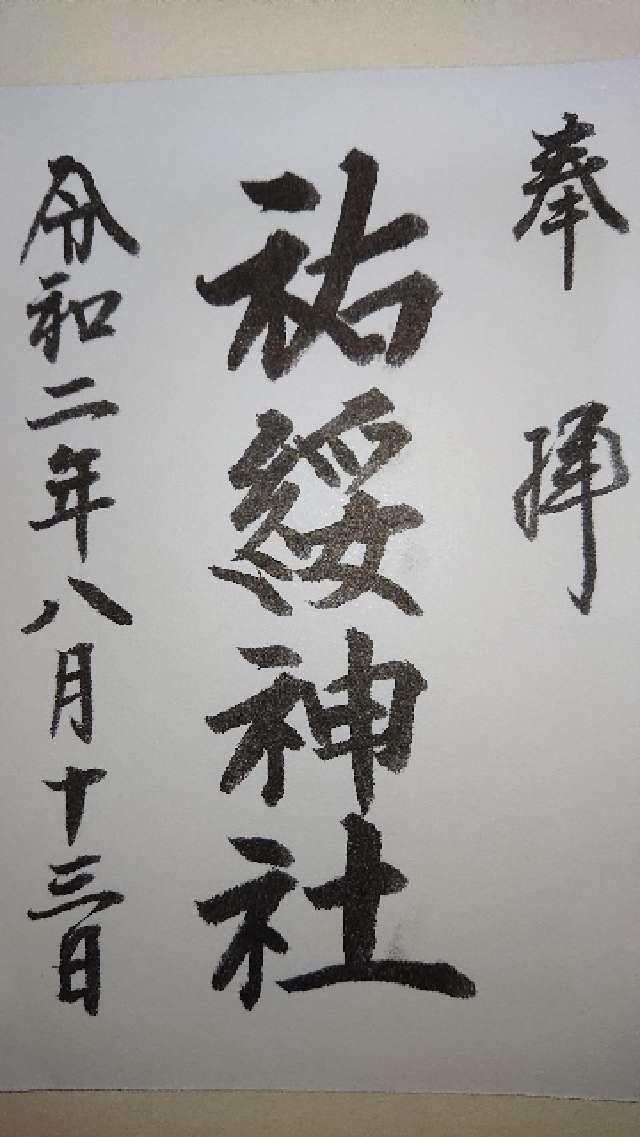 奉拝
祐綏神社
令和二年八月十三日